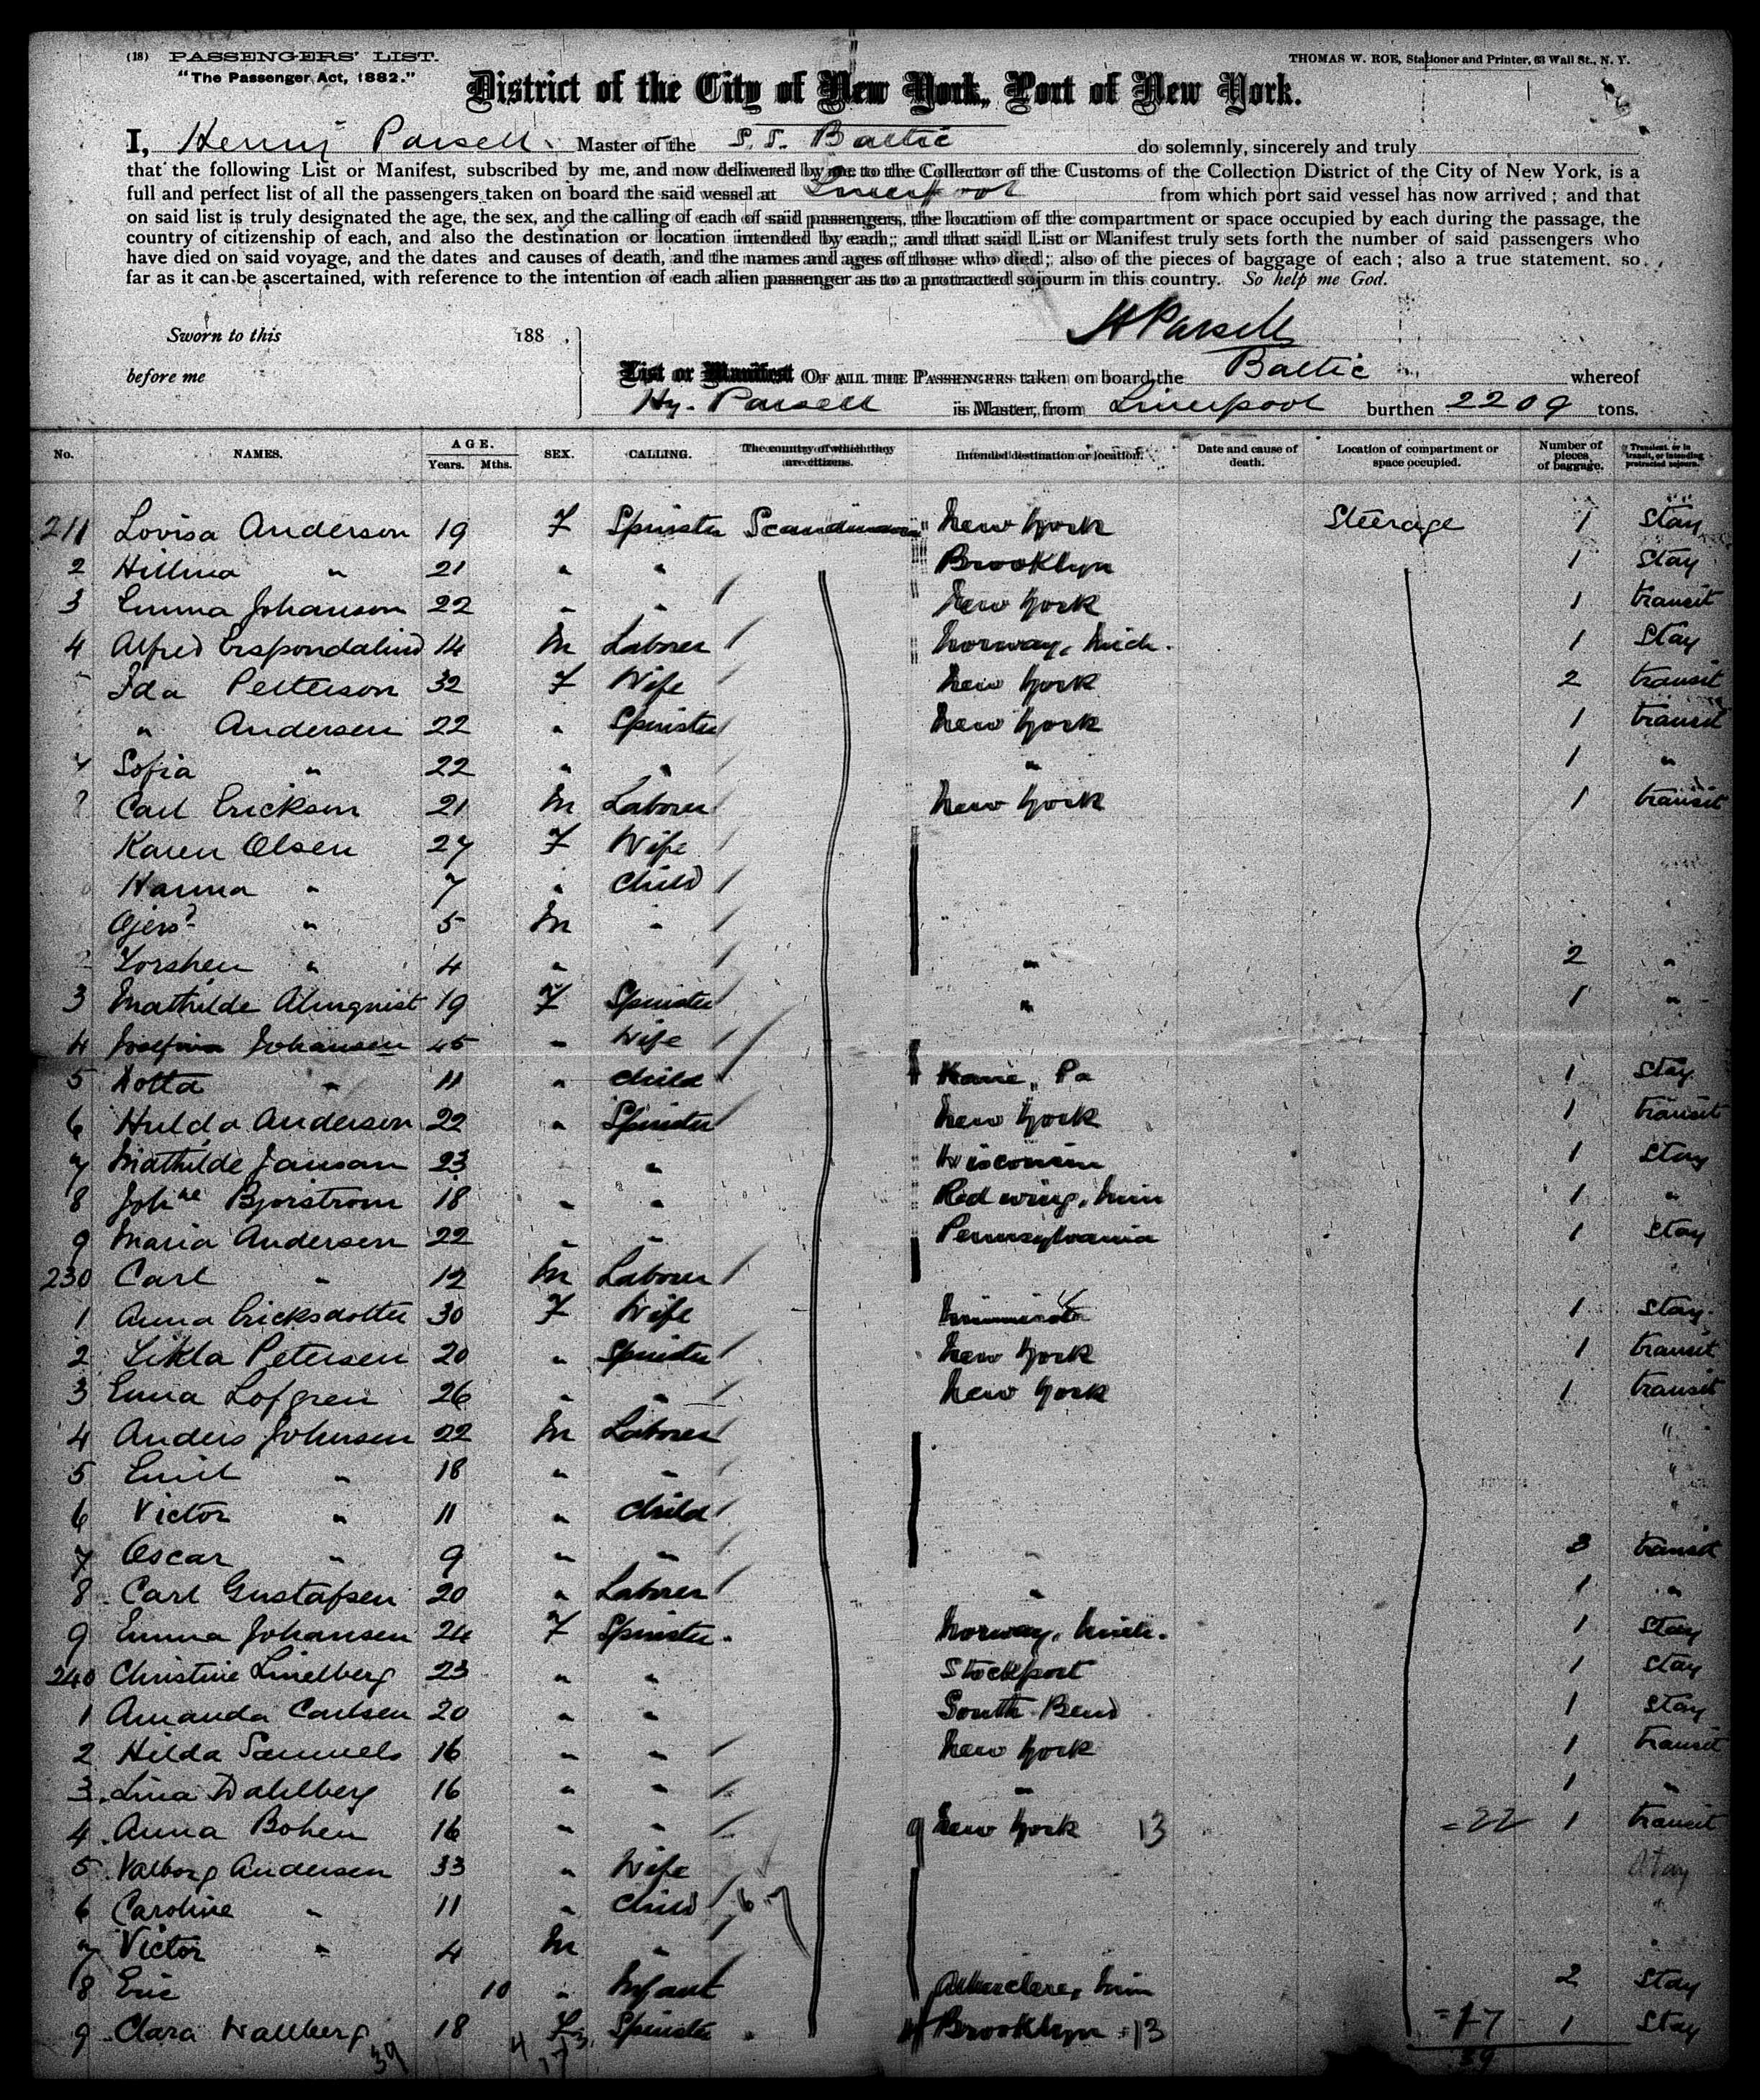 (18) PASSENGERS' LIST.
THOMAS W. ROE, Stationer and Printer, 63 Wall St., N. Y.
"The Passenger Act, 1882."
District of the City of New York, Port of New York.
I, Henry Parsell Master of the S.S. Baltic do solemnly, sincerely and truly
that the following List or Manifest, subscribed by me, and now delivered by me to the Collector of the Customs of the Collection District of the City of New York, is a
full and perfect list of all the passengers taken on board the said vessel at Liverpool from which port said vessel has now arrived; and that
on said list is truly designated the age, the sex, and the calling of each of said passengers, the location of the compartment or space occupied by each during the passage, the
country of citizenship of each, and also the destination or location intended by each; and that said List or Manifest truly sets forth the number of said passengers who
have died on said voyage, and the dates and causes of death, and the names and ages of those who died; also of the pieces of baggage of each; also a true statement, so
far as it can be ascertained, with reference to the intention of each alien passenger as to a protracted sojourn in this country. So help me God.
Sworn to this 188 .
H Parsell
before me
List or Manifest OF ALL THE PASSENGERS taken on board the Baltic whereof
Hy. Parsell is Master, from Liverpool burthen 2209 tons.
No. NAMES. AGE. Years. Mths. SEX. CALLING. The country of which they are citizens. Intended destination or location. Date and cause of death. Location of compartment or space occupied. Number of pieces of baggage. Transient, or in transit, or intending protracted sojourn.
211 Lovisa Anderson 19 F Spinster Scandinavia New York Steerage 1 Stay
2 Hillma " 21 " " Brooklyn 1 Stay
3 Emma Johanson 22 " " New York 1 transit
4 Alfred 14 M Laborer Norway, Mich. 1 Stay
5 Ida Petterson 32 F Wife New York 2 transit
" Andersen 22 " Spinster New York 1 transit
7 Sofia " 22 " " " 1 "
8 Carl Erickson 21 M Laborer New York 1 transit
Karen Olsen 27 F Wife
Hanna " 7 " Child
" 5 M "
2 Torshen " 4 " " 2 "
3 Mathilde Almquist 19 F Spinster " 1 "
4 Josefina Johansen 45 " Wife
5 Lotta " 11 " Child Kane, Pa 1 Stay
6 Hulda Anderson 22 " Spinster New York 1 transit
7 Mathilde Janson 23 " Wisconsin 1 Stay
8 Joh ne Bjorstrom 18 " " Red wing, Min 1 "
9 Maria Andersen 22 " " Pennsylvania 1 Stay
230 Carl " 12 M Laborer
1 Anna Ericksdotter 30 F Wife Minnesota 1 Stay
2 Tekla Petersen 20 " Spinster New York 1 transit
3 Emma Lofgren 26 " " New York 1 transit
4 Anders Johnsen 22 M Laborer "
5 Emil " 18 " " "
6 Victor " 11 " Child "
7 Oscar " 9 " " " 3 transit
8 Carl Gustafsen 20 " Laborer " 1 "
9 Emma Johansen 24 F Spinster Norway, Mich. 1 Stay
240 Christine Lindberg 23 " " Stockport 1 Stay
1 Amanda Carlsen 20 " " South Bend 1 Stay
2 Hilda Samuels 16 " " New York 1 transit
3 Lina Dahlberg 16 " " " 1 "
4 Anna Bohen 16 " " New York 13 =22 1 transit
5 Valborg Andersen 33 " Wife Stay
6 Caroline " 11 " Child "
7 Victor " 4 M " "
8 Eric 10 " Infant Min 2 Stay
9 Clara Wallberg 18 F Spinster Brooklyn 13 =17 1 Stay
39 4 17 39